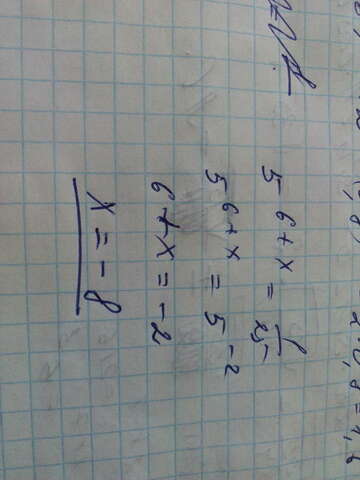 5^{6+x} = \frac{1}{25}
5^{6+x} = 5^{-2}
6+x = -2
x = -8